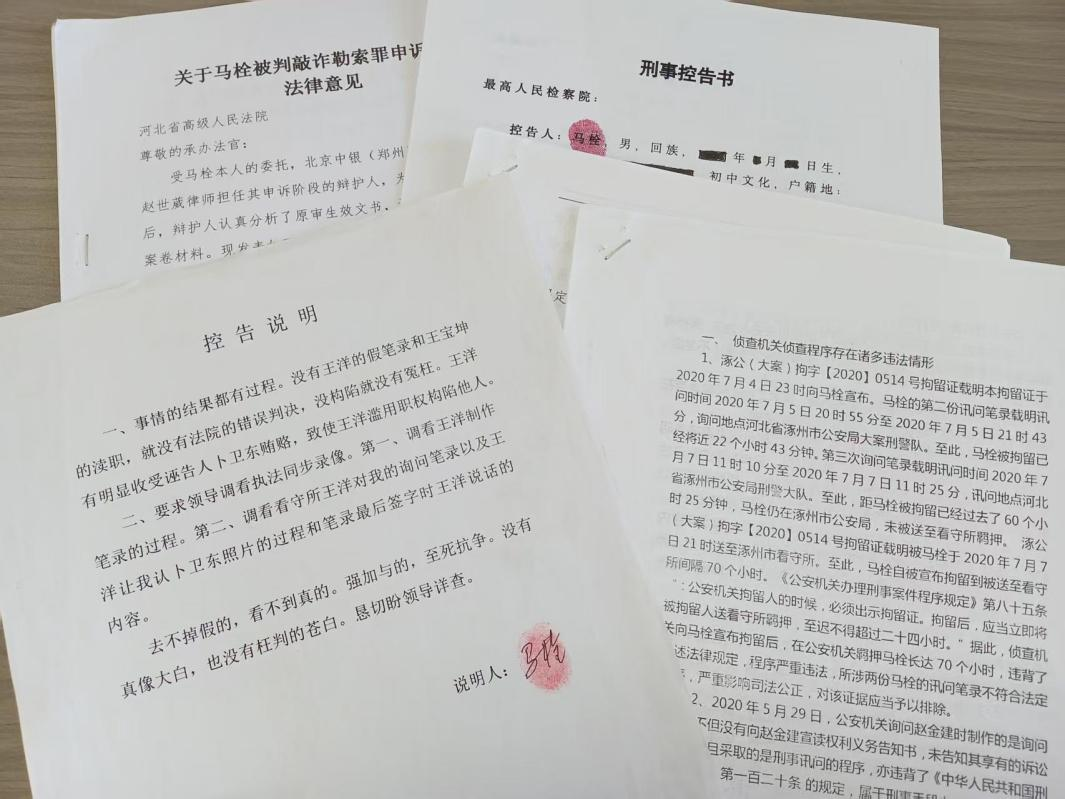 关于马栓被判敲诈勒索罪申诉
法律意见
河北省高级人民法院
尊敬的承办法官：
受马栓本人的委托，北京中银（郑州
赵世葳律师担任其申诉阶段的辩护人，为
后，辩护人认真分析了原审生效文书、
案卷材料。现发表
刑事控告书
最高人民检察院：
控告人：马栓，男，回族，年 月 日生，
初中文化，户籍地：
定
控告说明
一、事情的结果都有过程。没有王洋的假笔录和王宝坤
的渎职，就没有法院的错误判决，没构陷就没有冤枉。王洋
有明显收受诬告人卜卫东贿赂，致使王洋滥用职权构陷他人。
二、要求领导调看执法同步录像。第一、调看王洋制作
笔录的过程。第二、调看看守所王洋对我的询问笔录以及王
洋让我认卜卫东照片的过程和笔录最后签字时王洋说话的
内容。
去不掉假的，看不到真的。强加与的，至死抗争。没有
真像大白，也没有枉判的苍白。恳切盼领导详查。
说明人：马栓
一、 侦查机关侦查程序存在诸多违法情形
1、涿公（大案）拘字【2020】0514号拘留证载明本拘留证于
2020年7月4日23时向马栓宣布。马栓的第二份讯问笔录载明讯
问时间2020年7月5日20时55分至2020年7月5日21时43
分，询问地点河北省涿州市公安局大案刑警队。至此，马栓被拘留已
经将近22个小时43分钟。第三次询问笔录载明讯问时间2020年7
月7日11时10分至2020年7月7日11时25分，讯问地点河北
省涿州市公安局刑警大队。至此，距马栓被拘留已经过去了60个小
时25分钟，马栓仍在涿州市公安局，未被送至看守所羁押。 涿公
（大案）拘字【2020】0514号拘留证载明被马栓于2020年7月7
日21时送至涿州市看守所。至此，马栓自被宣布拘留到被送至看守
所间隔70个小时。《公安机关办理刑事案件程序规定》第八十五条
“：公安机关拘留人的时候，必须出示拘留证。拘留后，应当立即将
被拘留人送看守所羁押，至迟不得超过二十四小时。“据此，侦查机
关向马栓宣布拘留后，在公安机关羁押马栓长达70个小时，违背了
述法律规定，程序严重违法，所涉两份马栓的讯问笔录不符合法定
，严重影响司法公正，对该证据应当予以排除。
2、2020年5月29日，公安机关询问赵金建时制作的是询问
不但没有向赵金建宣读权利义务告知书，未告知其享有的诉讼
且采取的是刑事讯问的程序，亦违背了《中华人民共和国刑
第一百二十条 的规定，属于刑事手段